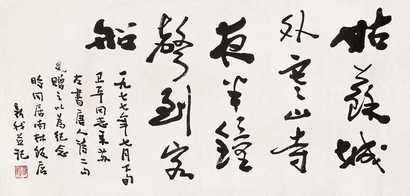 姑蘇城
外寒山寺
夜半鐘
聲到客
船
一九七七年七月十日
卫平同志来苏
左書唐人詩二句
贈之以為纪念
時同居南林饭店
新我並記